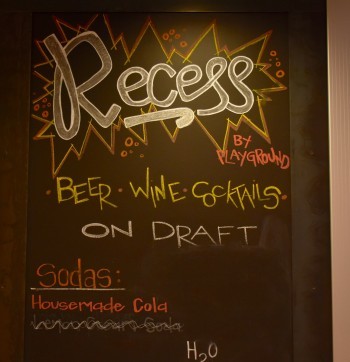 Recess
BY
PLAYGROUND
· BEER · WINE · COCKTAILS ·
ON DRAFT
Sodas:
Housemade Cola
H2O